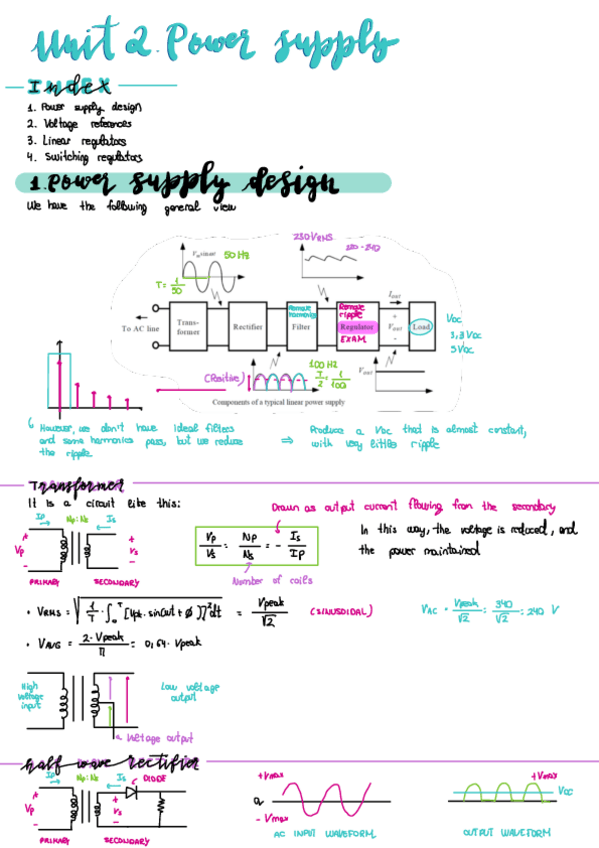 Unit 2. Power supply
Index
1. Power supply design
2. Voltage references
3. Linear regulators
4. Switching regulators
1. Power supply design
We have the following general view
230VRMS
220 - 240
Vm sin ωt
50 Hz
T = 1/50
To AC line
Trans-
former
Rectifier
Remove
harmonics
Filter
Remove
ripple
Regulator
EXAM
Iout
+
Vout
-
Load
VDC
3,3 VDC
5 VDC
(Positive)
100 Hz
T/2 = 1/100
Vout
Components of a typical linear power supply
However, we don't have ideal filters
and some harmonics pass, but we reduce
the ripple
⇒ Produce a VDC that is almost constant,
with very little ripple
Transformer
It is a circuit like this:
Drawn as output current flowing from the secondary
Ip Np:Ns Is
+ Vp -
+ Vs -
PRIMARY SECONDARY
Vp/Vs = Np/Ns = - Is/Ip
Number of coils
In this way, the voltage is reduced, and
the power maintained
• VRMS = √(1/T · ∫₀ᵀ [Vpk · sin(ωt + ϕ)]² dt = Vpeak/√2 (SINUSOIDAL)
VAC = Vpeak/√2 = 340/√2 = 240 V
• VAVG = 2·Vpeak/π = 0,64 · Vpeak
High
voltage
input
Low voltage
output
Voltage output
Half wave rectifier
Ip Np:Ns Is DIODE
+ Vp -
+ Vs -
PRIMARY SECONDARY
+Vmax
0v
- Vmax
AC INPUT WAVEFORM
+Vmax
VDC
OUTPUT WAVEFORM